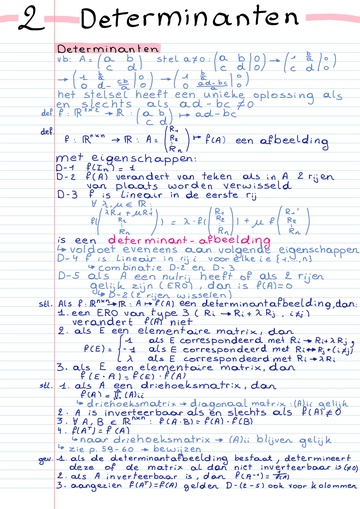 2 Determinanten
Determinanten
vb: A = (a b / c d) stel a≠0: (a b | 0 / c d | 0) → (1 b/a | 0 / c d | 0)
→ (1 b/a | 0 / 0 d - cb/a | 0) → (1 b/a | 0 / 0 ad-bc/a | 0)
het stelsel heeft een unieke oplossing als
en slechts als ad-bc ≠ 0
def. f: ℝ²ˣ² → ℝ: (a b / c d) ↦ ad-bc
def. f: ℝⁿˣⁿ → ℝ: A = (R₁ / R₂ / ⋮ / Rₙ) ↦ f(A) een afbeelding
met eigenschappen:
D-1 f(In) = 1
D-2 f(A) verandert van teken als in A 2 rijen
van plaats worden verwisseld
D-3 f is lineair in de eerste rij
∀ λ, μ ∈ ℝ:
f(λR₁ + μR₁' / R₂ / ⋮ / Rₙ) = λ · f(R₁ / R₂ / ⋮ / Rₙ) + μ f(R₁' / R₂ / ⋮ / Rₙ)
is een determinant-afbeelding
↳ voldoet eveneens aan volgende eigenschappen
D-4 f is lineair in rij i voor elke i ∈ {1,...,n}
↳ combinatie D-2 en D-3
D-5 als A een nulrij heeft of als 2 rijen
gelijk zijn (ERO), dan is f(A)=0
↳ D-2 (2 rijen wisselen)
stel. Als f: ℝⁿˣⁿ → ℝ: A ↦ f(A) een determinantafbeelding, dan:
1. een ERO van type 3 (Ri → Ri + λRj, i≠j)
verandert f(A) niet
2. als E een elementaire matrix, dan
f(E) = { 1 als E correspondeerd met Ri → Ri + λRj
-1 als E correspondeerd met Ri ↔ Rj (i≠j)
λ als E correspondeerd met Ri → λRi
3. als E een elementaire matrix, dan
f(E·A) = f(E)·f(A)
stel. 1. als A een driehoeksmatrix, dan
f(A) = ∏ (A)ii
↳ driehoeksmatrix → diagonaal matrix: (A)ii gelijk
2. A is inverteerbaar als en slechts als f(A) ≠ 0
3. ∀ A, B ∈ ℝⁿˣⁿ: f(A·B) = f(A)·f(B)
4. f(Aᵀ) = f(A)
↳ naar driehoeksmatrix → (A)ii blijven gelijk
↳ zie p. 59-60 → bewijzen
gev. 1. als de determinantafbeelding bestaat, determineert
deze of de matrix al dan niet inverteerbaar is (≠0)
2. als A inverteerbaar is, dan f(A⁻¹) = 1/f(A)
3. aangezien f(Aᵀ) = f(A) gelden D-(2-5) ook voor kolommen